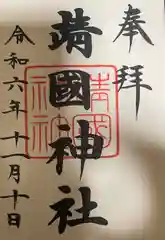 奉拝
靖國神社
令和六年十一月十日
靖國神社